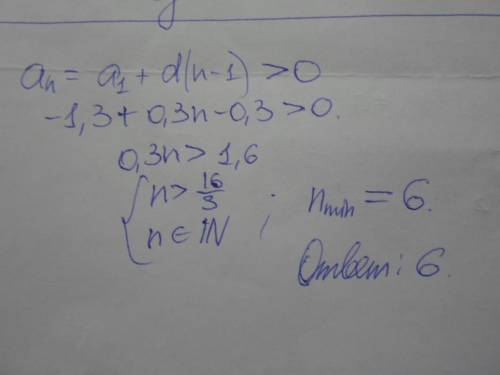 aₙ = a₁ + d(n-1) > 0
-1,3 + 0,3n - 0,3 > 0.
0,3n > 1,6
{ n > 16/3
n ∈ ℕ ; n_min = 6.
Ответ: 6.